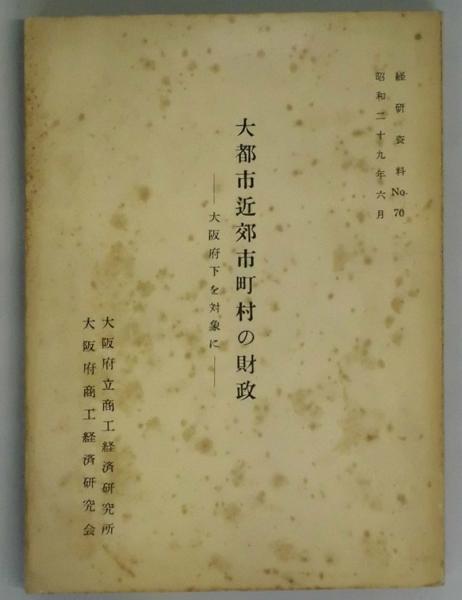 経研資料 No. 70
昭和二十九年六月
大都市近郊市町村の財政
——大阪府下を対象に——
大阪府立商工経済研究所
大阪府商工経済研究会